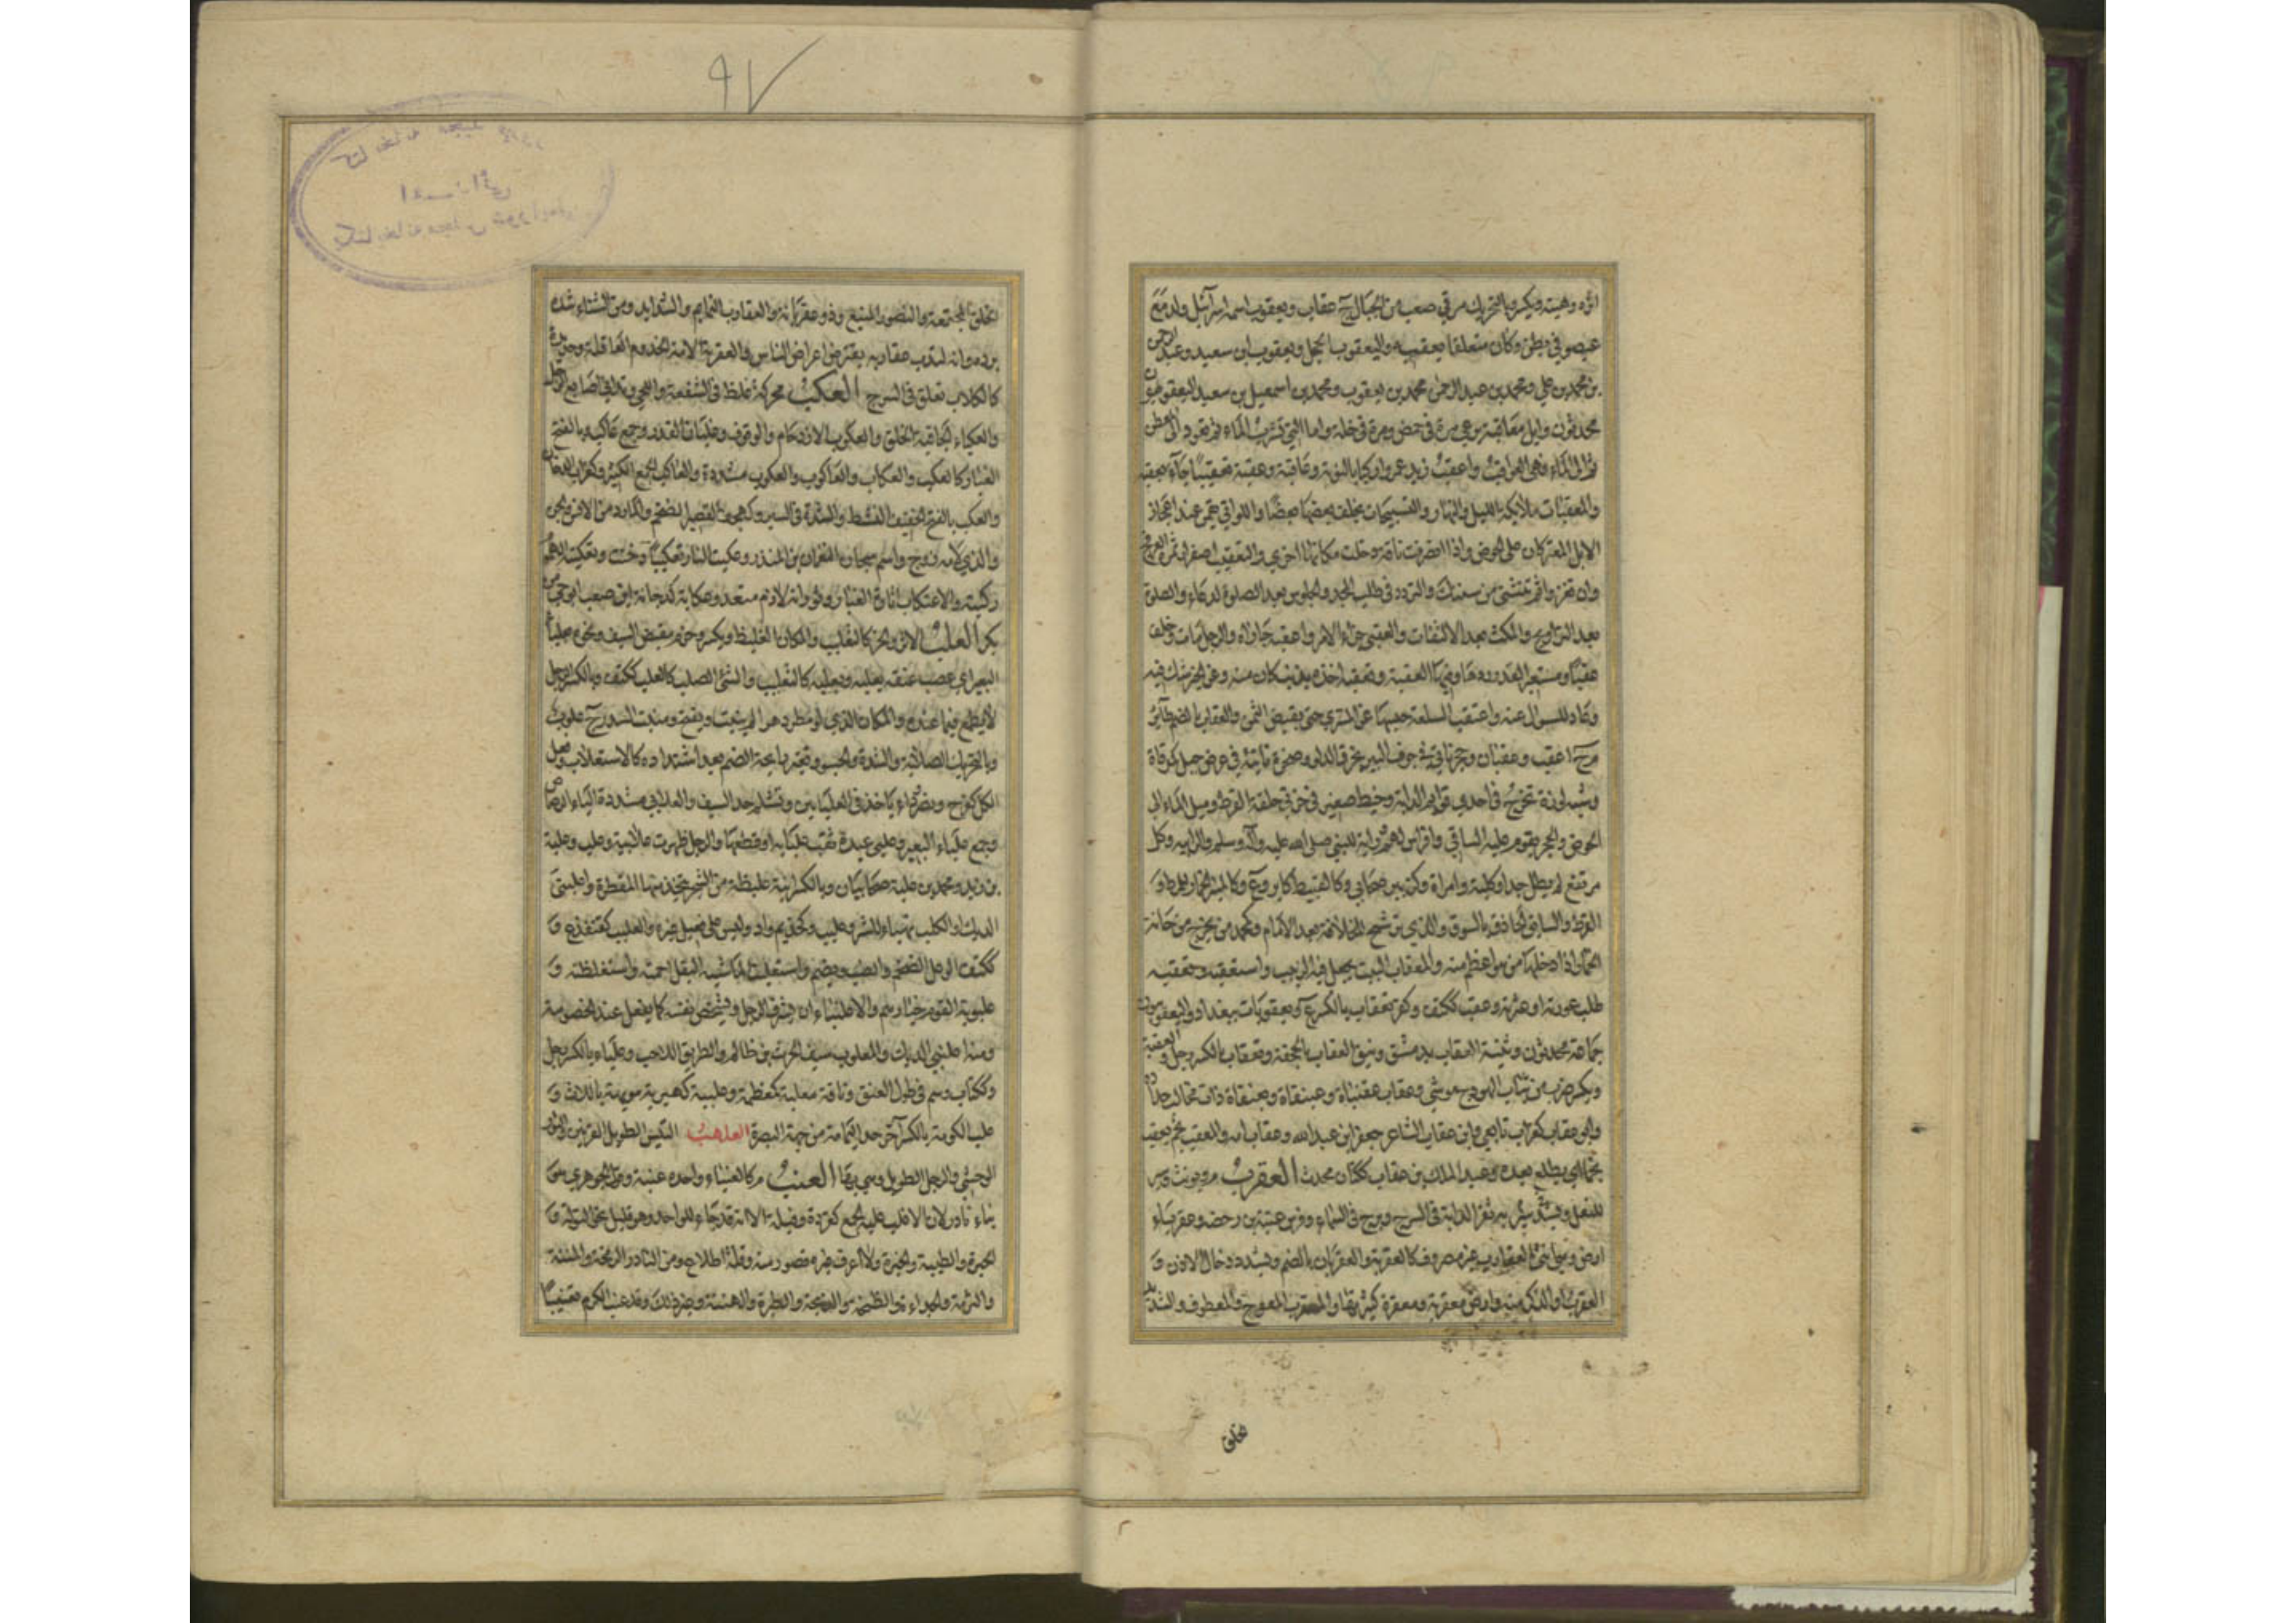 اثره وهيئته ويكسر وبالتحريك مرقى صعب من الجبال ج عقاب ويعقوب اسمه اسرائيل ولد مع
عيصو في بطن وكان متعلقا بعقبه واليعقوب الحجل ويعقوب ابن سعيد وعبد الرحمن
بن محمد بن علي ومحمد بن عبد الرحمن محمد بن يعقوب ومحمد بن اسمعيل بن سعيد اليعقوبيون
محدثون وابل معاقبة ترعى مرة في حمض ومرة في خلة واما التي تشرب الماء ثم تعود الى المعطن
ثم الى الماء فهي العواقب واعقب زيد عمرا ركبا بالنوبة وعاقبه وعقبه تعقيبا جاء بعقبه
والمعقبات ملائكة الليل والنهار والتسبيحات يخلف بعضها بعضا واللواتي يقمن عند اعجاز
الابل المعتركات على الحوض فاذا انصرفت ناقة دخلت مكانها اخرى والتعقيب اصفرار ثمرة العرفج
وان تغزو ثم تثني من سنتك والتردد في طلب المجد والجلوس بعد الصلوة لدعاء والصلوة
بعد التراويح والمكث بعد الالتفات والعقبى جزاء الامر واعقبه جازاه والرجل مات وخلف
عقبا ومستعير القدر ردها وفيها العقبة وتعقبه اخذه بذنب كان منه وعن الخبر شك فيه
وعاد للسؤال عنه واعتقب السلعة حبسها عن المشتري حتى يقبض الثمن والعقاب بالضم طائر
ج اعقب وعقبان وحجر ناتئ في جوف البئر يخرق الدلو وصخرة ناتئة في عرض جبل كمرقاة
وشبه لوزة تخرج في احدى قوائم الدابة وخيط صغير في خرتي حلقة القرط ومسيل الماء الى
الحوض والحجر يقوم عليه الساقي وافراس لهم وراية للنبي صلى الله عليه وآله وسلم والرابية وكل
مرتفع لم يطل جدا وكلبة وامراة وكزبير صحابي وكالقبيط طاير وع وكالمنبر الخمار للمراة و
القرط والسائق الحاذق بالسوق والذي يرشح للخلافة بعد الامام وكمحمد من يخرج من حانة
الخمار اذا دخلها من هو اعظم منه والمعقاب البيت يجعل فيه الزبيب واستعقبه وتعقبه
طلب عورته او عثرته وعقب ككتف وكفر تعقاب بالكسر ع ويعقوبا ت ببغداد واليعقوبيون
جماعة محدثون وثنية العقاب بدمشق ونيق العقاب بالجحفة وتعقاب بالكسر رجل والعقبة
ويكسر ضرب من ثياب الهودج موشى وعقاب عقنباة وعبنقاة وبعنقاة ذات مخالب حداد
وابو عقاب كغراب تابعي وابن عقاب الشاعر جعفر ابن عبد الله وعقاب امه والعقيب نجم يعقب
نجما اي يطلع بعده وعبد الملك بن عقاب ككتان محدث العقرب م ويؤنث وسير
للنعل وسير يشد به ثفر الدابة في السرج وبرج في السماء وفرس عتبة بن رحضة وعقرباء
ارض وهي انثى العقارب غير مصروف كالعقربة والعقربان بالضم ويشدد دخال الاذن و
العقرب او الذكر منه وارض معقربة ومعقرة كثيرتها والمعقرب المعوج والمعطوف والشديد
الخلق
الخلق المجتمعة والنصور المنيع وذو عقربانة والعقارب النمايم والشدايد ومن الشتاء شدة
برده وانه لتدب عقاربه يقترض اعراض الناس والعقربة الامة الخدوم العاقلة وحديدة
كالكلاب تعلق في السرج العكب محركة غلظ في الشفة واللحي وتداني اصابع الرجل
والعكباء الجافية الخلق والعكوب الازدحام والوقوف وغليان القدر وجمع عاكب وبالفتح
الغبار كالعكب والعكاب والعاكوب والعكوب مشددة والعاكب الجمع الكثير وكغراب الدخان
والعكب بالفتح الخفيف النشيط والشدة في السير وكهجف القصير الضخم والمارد من الانس والجن
والذي لامه زوج واسم سجان النعمان بن المنذر وعكبت النار تعكيبا دخنت وتعكبته الهموم
ركبته والاعتكاب اثارة الغبار وثورانه لازم متعد وعكابة كدخانة ابن صعب ابو حي من
بكر العلب الاثر والحز كالتعليب والمكان الغليظ ويكسر وحزم مقبض السيف ونحوه بعلباء
البعير اي عصب عنقه يعلبه ويعلبه كالتعليب والشئ الصلب كالعلب ككتف وبالكسر الرجل
لا يطمع فيما عنده والمكان الذي لو مطر دهرا لم ينبت ويفتح ومنبت السدر ج علوب
وبالتحريك الصلابة والشدة والجسو وتغير رايحة اللحم بعد اشتداده كالاستعلاب وفعل
الكل كفرح ونصر وداء ياخذ في العلباءين وتثلم حد السيف والعلابي مشددة الياء الرصاص
وجمع علباء البعير وعلبى عبده ثقب علباءه او قطعها والرجل ظهرت علابيه وعلب وعلبة
بن زيد ومحمد بن علبة صحابيان وبالكسر ابنة غليظة من الشجر تتخذ منها المقطرة واعلنبى
الديك او الكلب تهيأ للشر وعليب وكحذيم واد وليس على فعيل غيره والعلبب كقنفذ ع و
ككتف الوعل الضخم والضب ويضم واستعلبت الماشية البقل اجمته واستغلظته و
علبوبة القوم خيارهم والاعلنباء ان يشرف الرجل ويشخص نفسه كما يفعل عند الخصومة
ومنه اعلنبى الديك والمعلوب سيف الحرث بن ظالم والطريق اللاحب وعلباء بالكسر رجل
وككتاب وسم في طول العنق وناقة معلبة كمعظمة وعلبية كهبرية مويهة بالدآث و
علب الكرمة بالكسر آخر حد اليمامة من جهة البصرة العلهب التيس الطويل القرنين والثور
الوحشي والرجل الطويل وهي بهاء العنب م كالعنباء واحده عنبة وقول الجوهري هو
بناء نادر لان الاغلب عليه الجمع كقردة وفيلة الا انه قد جاء للواحد وهو قليل نحو التولة و
الحبرة والطيبة والخيرة ولا اعرف غيره قصور منه وقلة اطلاع ومن النادر الزمخة والمننة
والثومة والحدأة والظمخة والذبحة والطيرة والهننة وغير ذلك وقد عنب الكرم تعنيبا